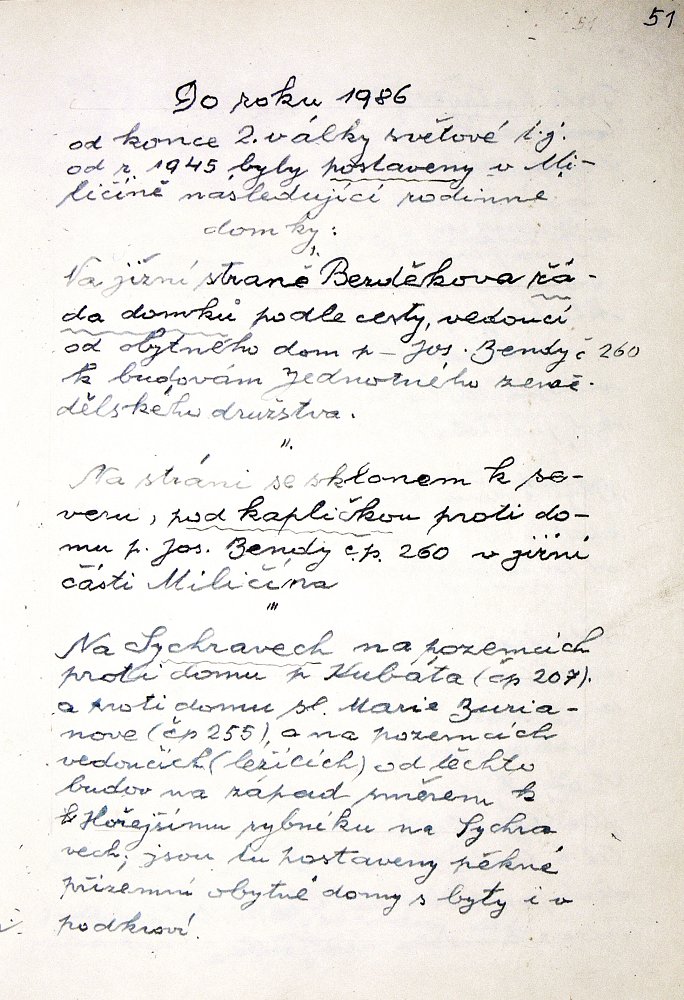 51
Do roku 1986
od konce 2. války světové t.j.
od r. 1945 byly postaveny v Mi-
ličíně následující rodinné
domky:
I.
Na jižní straně Bezděkova řá-
da domků podle cesty, vedoucí
od obytného dom p – Jos. Bendy č 260
k budovám Jednotného země-
dělského družstva.
II.
Na stráni se sklonem k se-
veru, pod kapličkou proti do-
mu p. Jos. Bendy č.p. 260 v jižní
části Miličína
III
Na Sychravech na pozemcích
proti domu p Kubáta (čp 207).
a proti domu sl. Marie Zuria-
nove (čp 255) a na pozemcích
vedoucích (ležících) od těchto
budov na západ směrem k
k Hořejšímu rybníku na Sychra
vech; jsou tu postaveny pěkné
přízemní obytné domy s byty i v
podkroví.